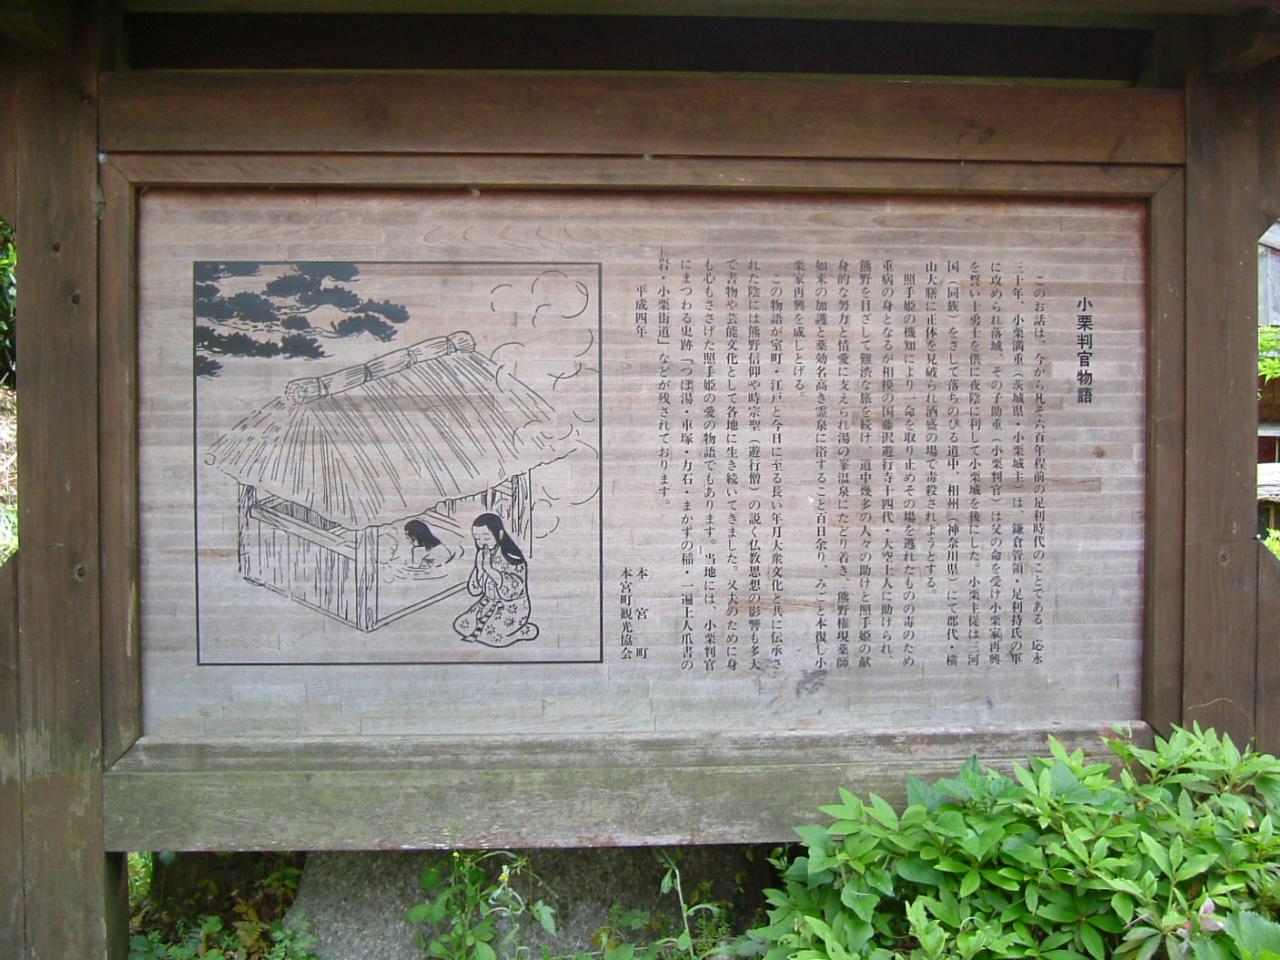 小栗判官物語
このお話は、今から凡そ六百年程前の足利時代のことである。応永
三十年、小栗満重(茨城県・小栗城主)は、鎌倉管領・足利持氏の軍
に攻められ落城、その子助重(小栗判官)は父の命を受け小栗家再興
を誓い十勇士を供に夜陰に利して小栗城を後にした。小栗主従は三河
国(同族)をさして落ちのびる道中、相州(神奈川県)にて郡代・横
山大膳に正体を見破られ酒盛の場で毒殺されようとする。
照手姫の機知により一命を取り止めその場を逃れたものの毒のため
重病の身となるが相模の国藤沢遊行寺十四代・大空上人に助けられ、
熊野を目ざして難渋な旅を続け、道中幾多の人々の助けと照手姫の献
身的な努力と情愛に支えられ湯の峯温泉にたどり着き、熊野権現薬師
如来の加護と薬効名高き霊泉に浴すること百日余り、みごと本復し小
栗家再興を成しとげる。
この物語が室町・江戸と今日に至る長い年月大衆文化と共に伝承さ
れた陰には熊野信仰や時宗聖(遊行僧)の説く仏教思想の影響も多大
で書物や芸能文化として各地に生き続いてきました。又夫のために身
も心もささげた照手姫の愛の物語でもあります。当地には、小栗判官
にまつわる史跡「つぼ湯・車塚・力石・まかずの稲・一遍上人爪書の
岩・小栗街道」などが残されております。
平成四年
本宮町
本宮町観光協会